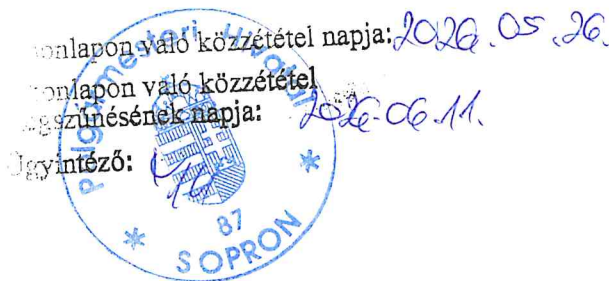 onlapon való közzététel napja: 2026.05.26.
onlapon való közzététel
gszűnésének napja: 2026.06.11.
Ügyintéző:
Polgármesteri Hivatal
87
SOPRON